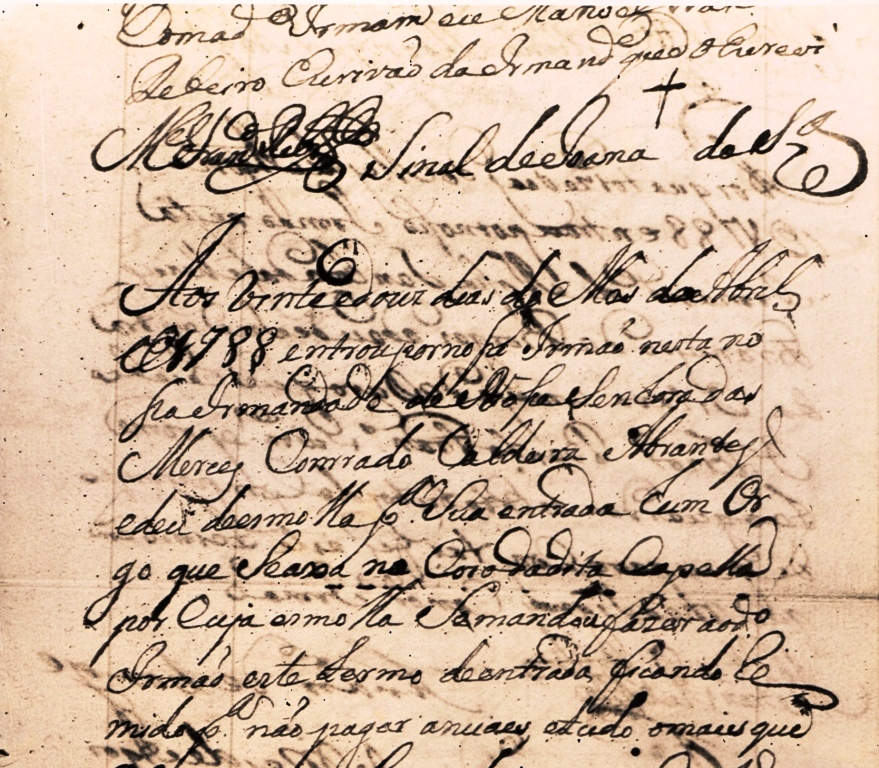 Tomad Irmam eu Manoel Fran
Rebeiro Escrivão da Irmand que o Escrevi
Mel Fran Ribro Sinal de Joana da Sª
Aos vinte e dous dias do Mes de Abril
de 1788 entrou por nosso Irmão nesta no
ssa Irmandade de Nossa Senhora das
Merces Conrrado Caldeira Abrantes
e deu de esmolla pª Sua entrada hum Or
go que Seaxa no Coro da dita Capella
por Cuja esmolla Se mandou fazer ao do
Irmão este termo de entrada ficando Re
mido pª não pagar anuaes e tudo o mais que